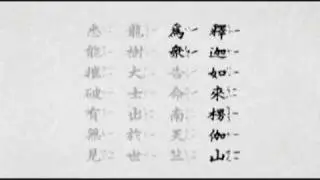 釋迦如來楞伽山
爲衆告命南天竺
龍樹大士出於世
悉能摧破有無見